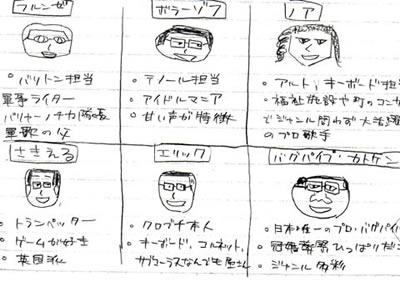 フルンゼ
・バリトン担当
軍事ライター
軍歌の父
ボラーゾフ
・テノール担当
・アイドルマニア
・甘い声が特徴
ノア
・アルト、キーボード担当
・福祉施設や町のコンサ
でジャンル問わず大活躍
のプロ歌手
さきえる
・トランペッター
・ゲームが好き
・英国派
エリック
・クロブチ本人
・キーボード、コルネット、
サブコーラスなんでも屋さん
バグパイプ・カトケン
・日本唯一のプロ・バグパイパ
・冠婚葬祭ひっぱりだこ
・ジャンル多彩